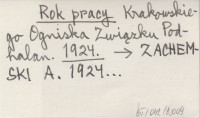 Rok pracy Krakowskie-
go Ogniska Związku Pod-
halan. 1924. → ZACHEM-
SKI A. 1924...